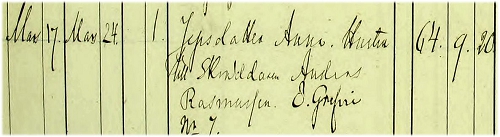 Mar 17. Mar 24. 1. Jepsdatter Anne. Hustru 64. 9. 20.
till Anders
Rasmussen. E.
No 7.